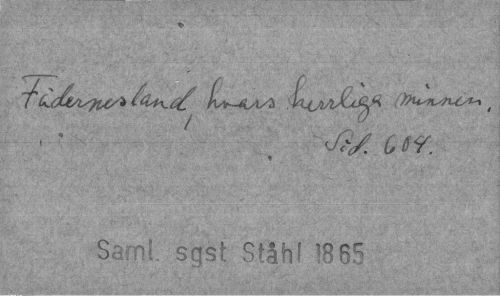 Fädernesland, hvars herrliga minnen,
Sid. 604.
Saml. sgst Ståhl 1865